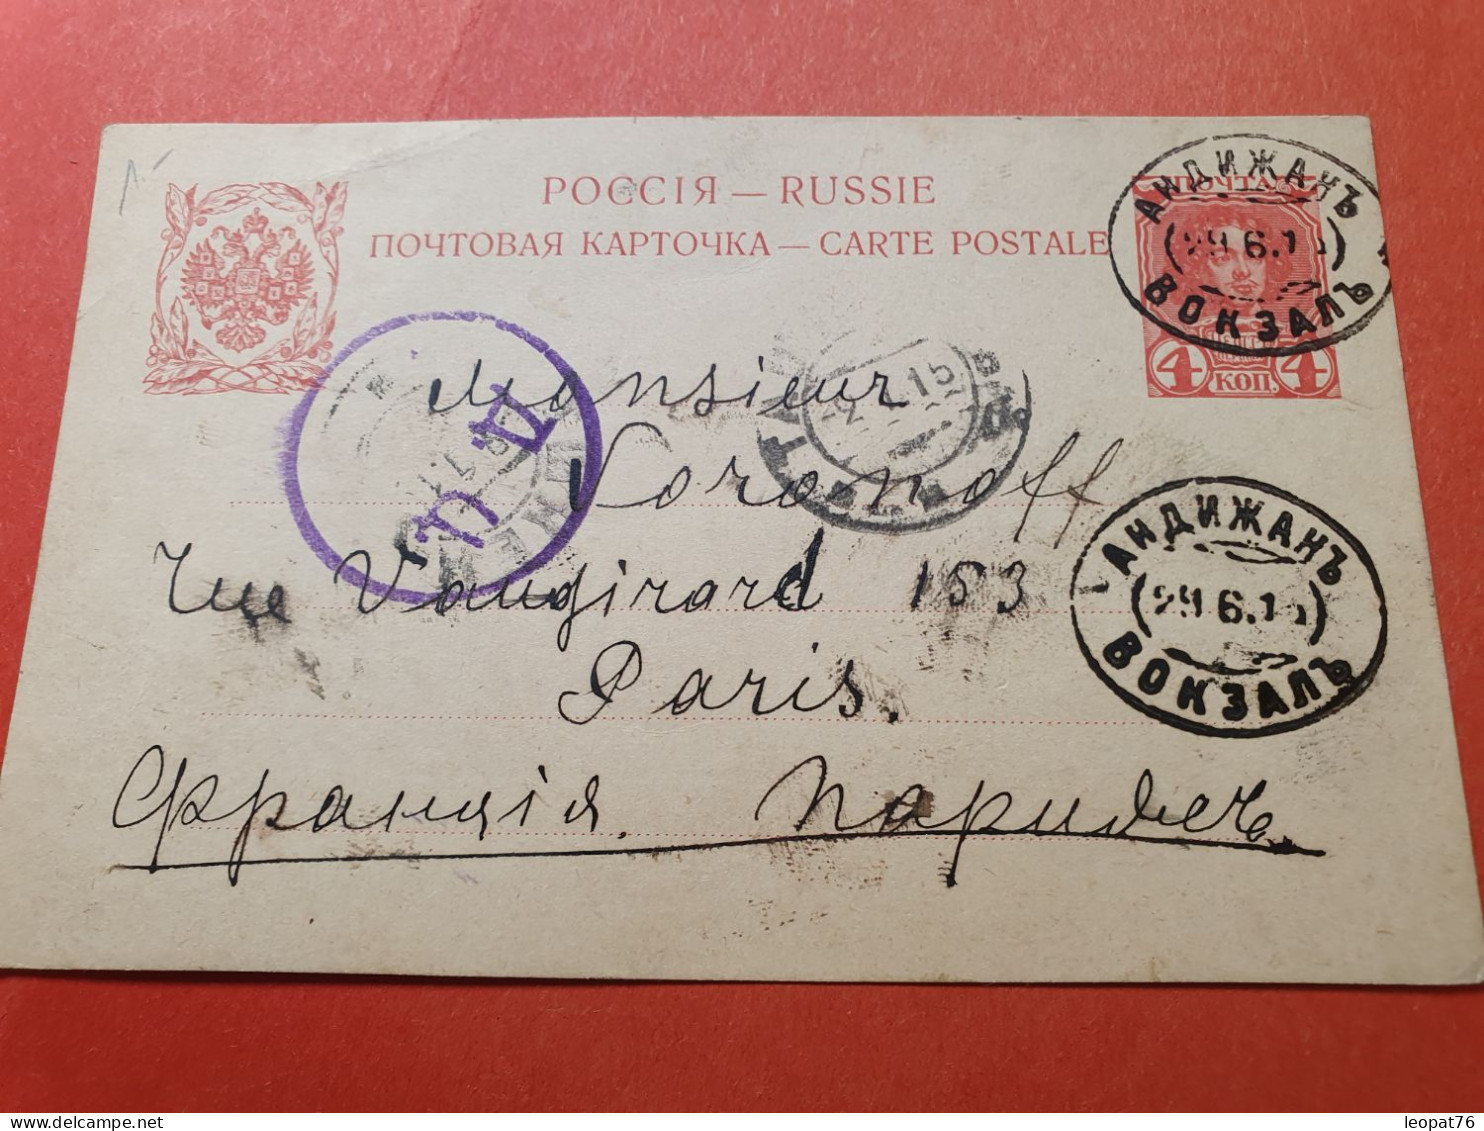 РОССІЯ — RUSSIE
ПОЧТОВАЯ КАРТОЧКА — CARTE POSTALE
ПОЧТА
4 КОП. 4
АНДИЖАНЪ
29 6.15
ВОКЗАЛЪ
Monsieur
Voronoff
Rue Vaugirard 153
Paris.
Франція. Парижъ
АНДИЖАНЪ
29 6.15
ВОКЗАЛЪ
Д. Ц.
15
leopat76